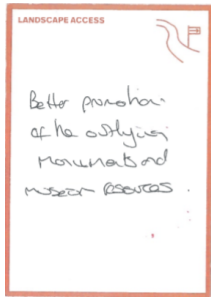 LANDSCAPE ACCESS
Better promotion
of the outlying
monuments and
museum resources.